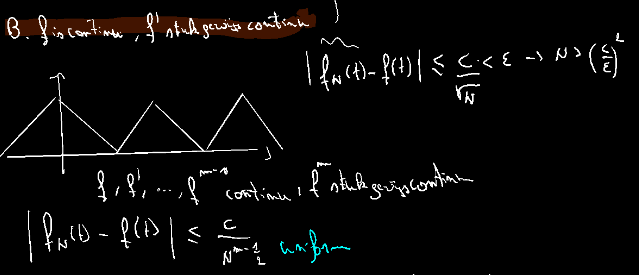 B. f is continu, f' stuksgewijs continu
|f_N(t) - f(t)| ≤ C/√N < ε → N > (C/ε)²
f, f', ..., f^{m-1} continu, f^m stuksgewijs continu
|f_N(t) - f(t)| ≤ C/N^{m-1/2} uniform